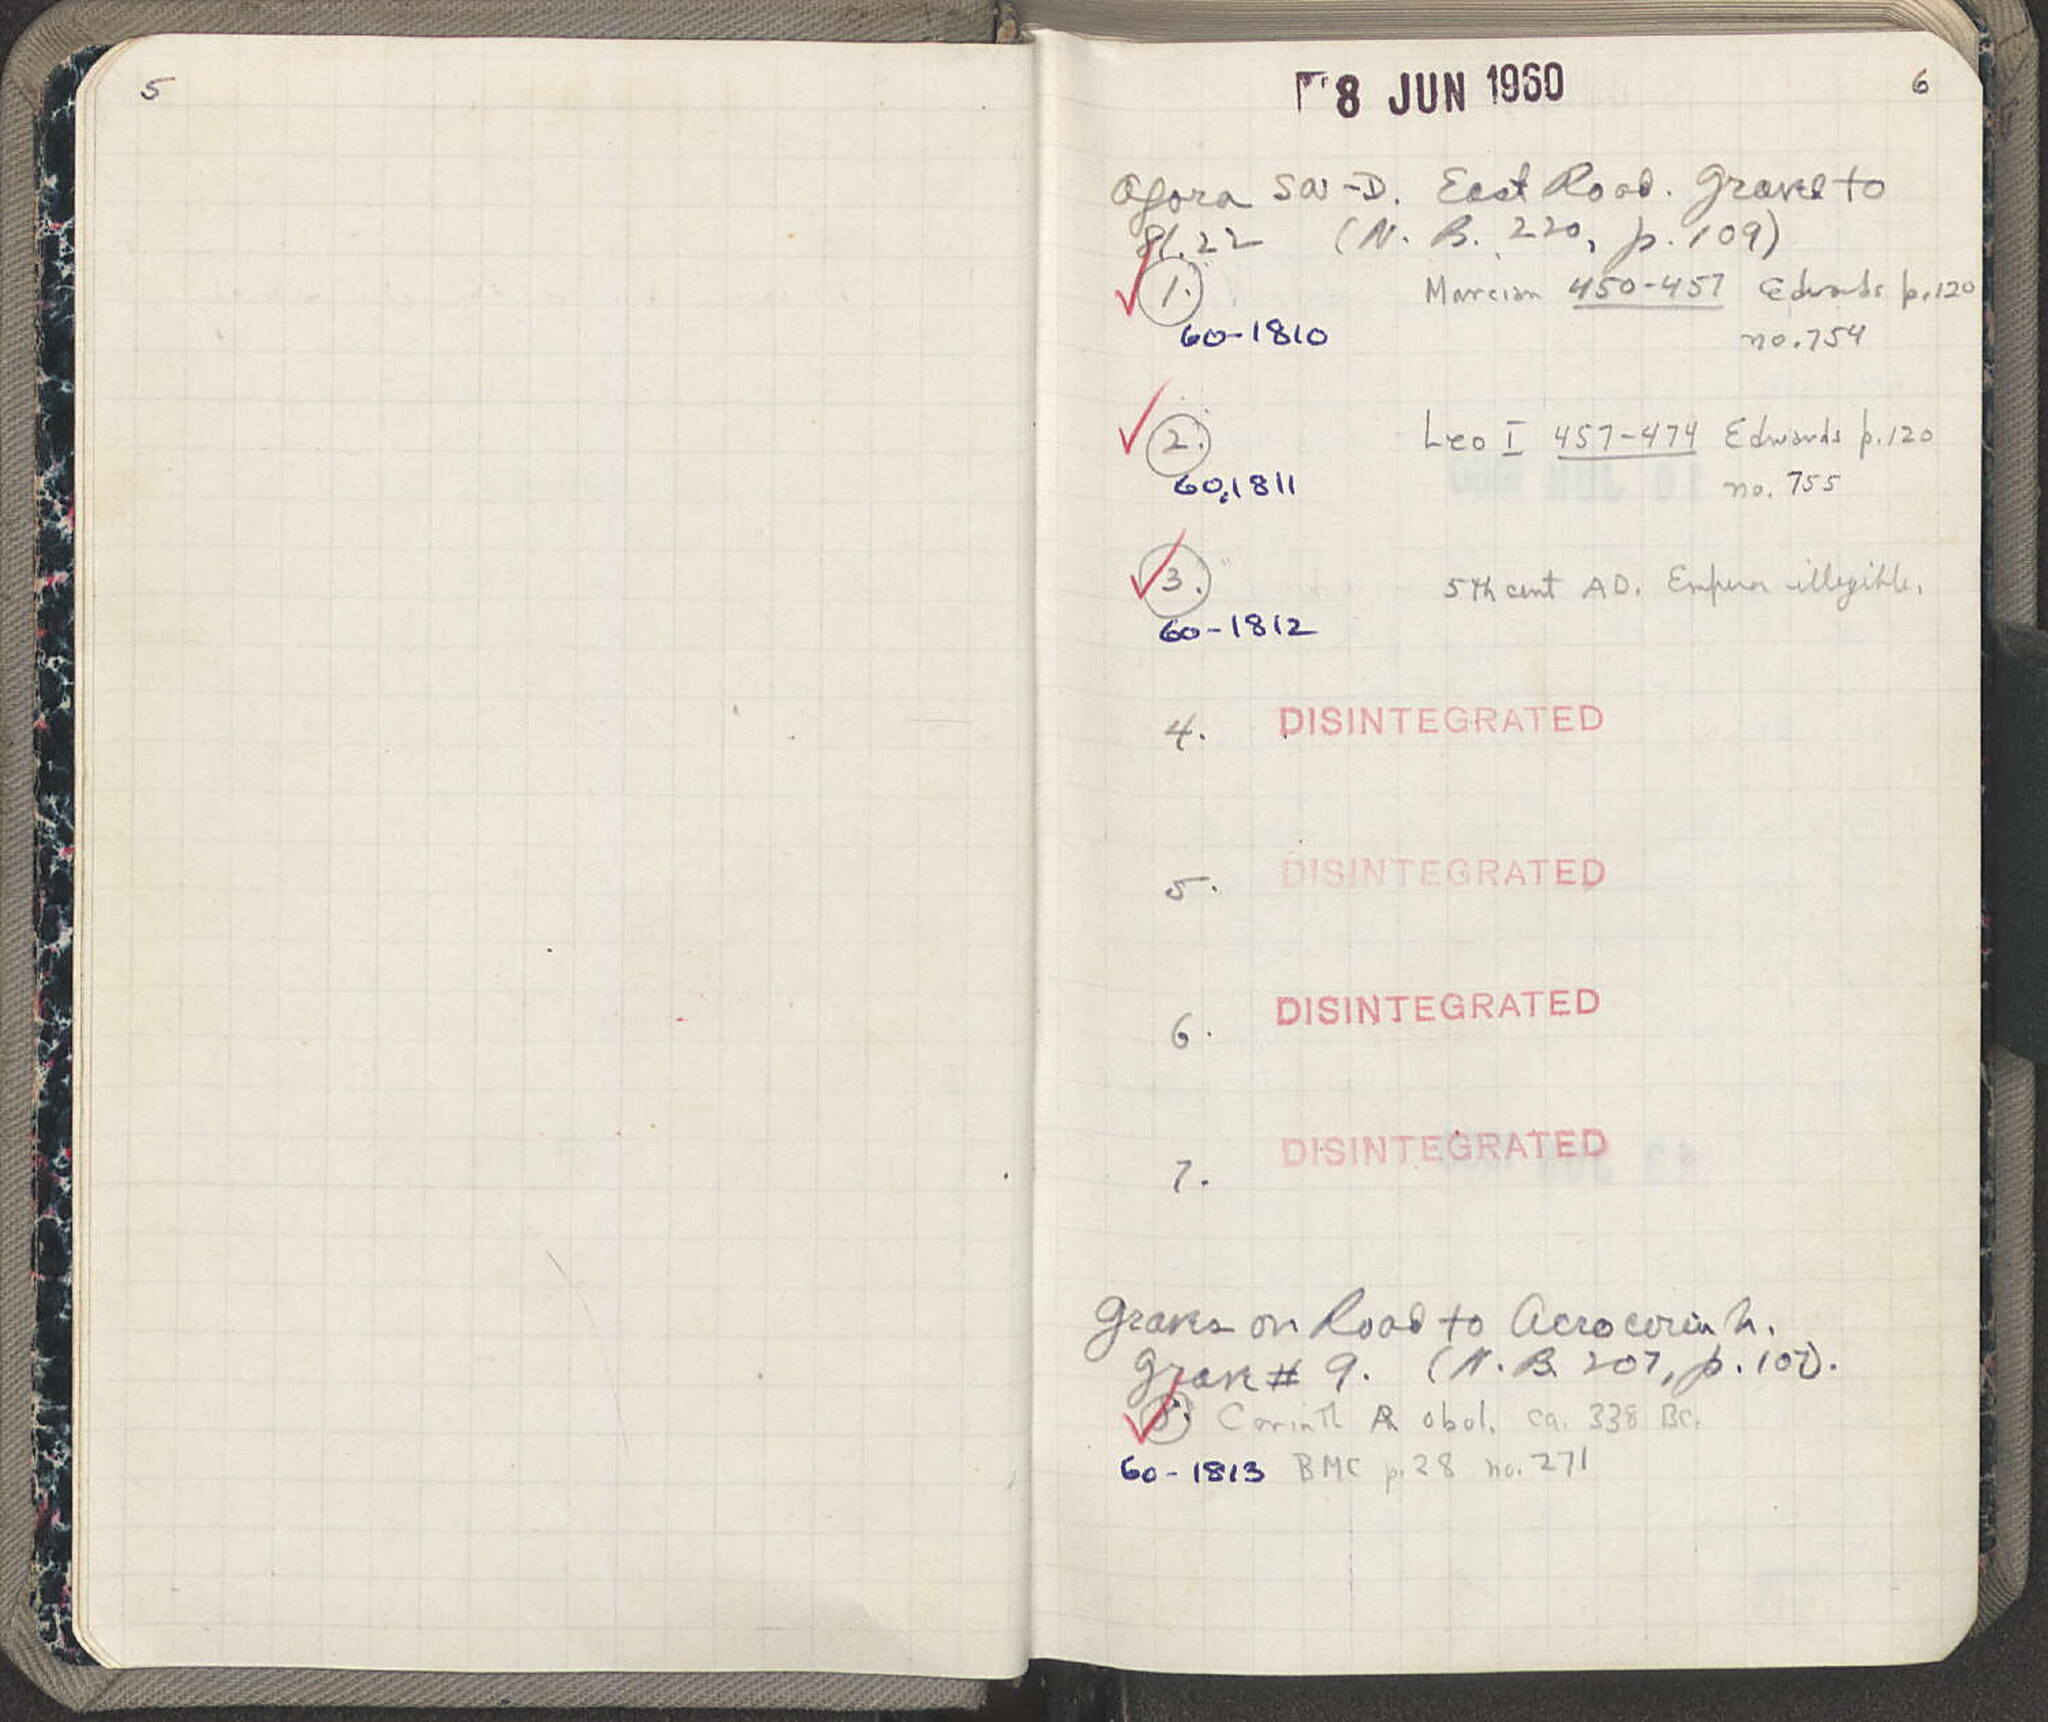 5
8 JUN 1960
6
Agora SW-D. East Road. Gravel to
81.22 (N. B. 220, p. 109)
1. Marcian 450-457 Edwards p. 120
60-1810 no. 754
2. Leo I 457-474 Edwards p. 120
60-1811 no. 755
3. 5th cent AD. Emperor illegible.
60-1812
4. DISINTEGRATED
5. DISINTEGRATED
6. DISINTEGRATED
7. DISINTEGRATED
Graves on Road to Acrocorinth.
Grave # 9. (N. B. 207, p. 107).
Corinth AR obol. ca. 338 BC.
60-1813 BMC p. 28 no. 271